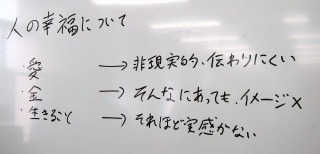 人の幸福について
・愛 → 非現実的、伝わりにくい
・金 → そんなにあっても、イメージ×
・生きること → それほど実感がない